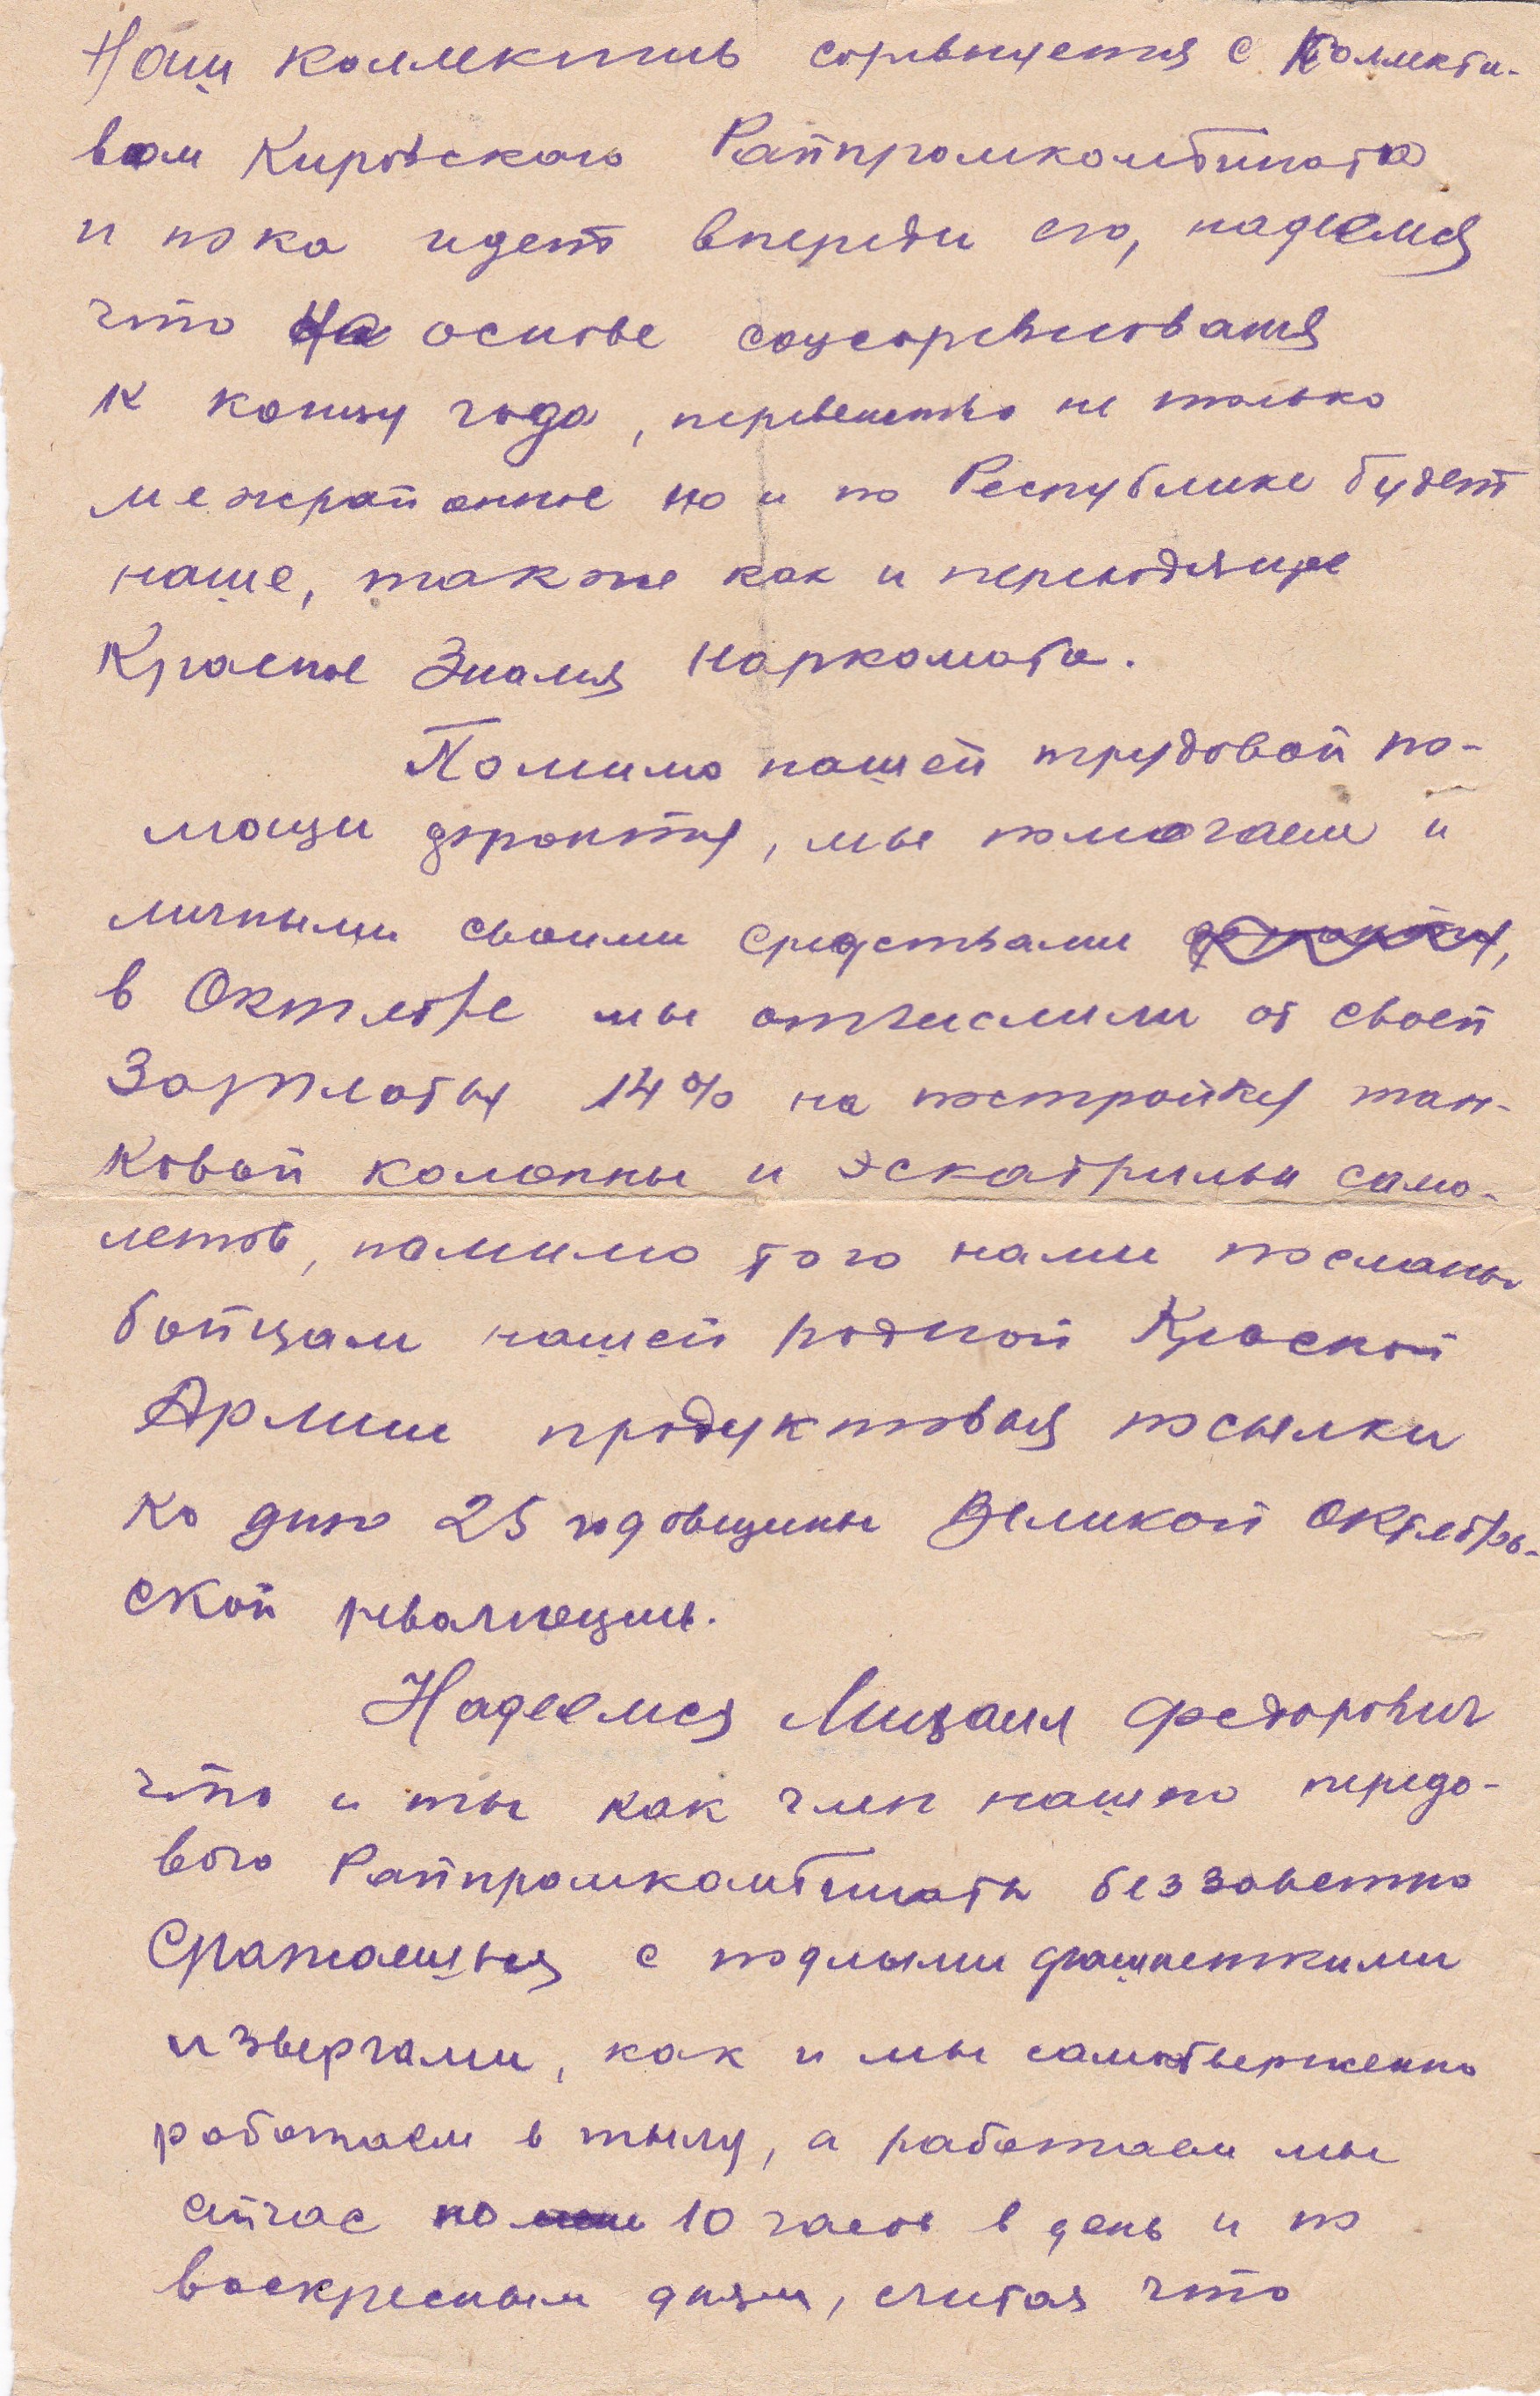 Наш коллектив соревнуется с Коллекти-
вом Кировского Райпромкомбината
и пока идет впереди его, надеемся
что на основе соцсоревнования
к концу года, первенство не только
межрайонное но и по Республике будет
наше, также как и переходящее
Красное Знамя Наркомата.
Помимо нашей трудовой по-
мощи фронту, мы помогаем и
личными своими средствами
в Октябре мы отчислили от своей
Зарплаты 14% на постройку тан-
ковой колонны и эскадрильи само-
летов, помимо того нами посланы
бойцам нашей родной Красной
Армии продуктовыя посылки
ко дню 25 годовщины Великой Октябрь-
ской революции.
Надеемся Михаил Федорович
что и ты как член нашего передо-
вого Райпромкомбината беззаветно
Сражаешься с подлыми фашисткими
извергами, как и мы самотверженно
работаем в тылу, а работаем мы
сейчас по 10 часов в день и по
воскресным дням, считая что